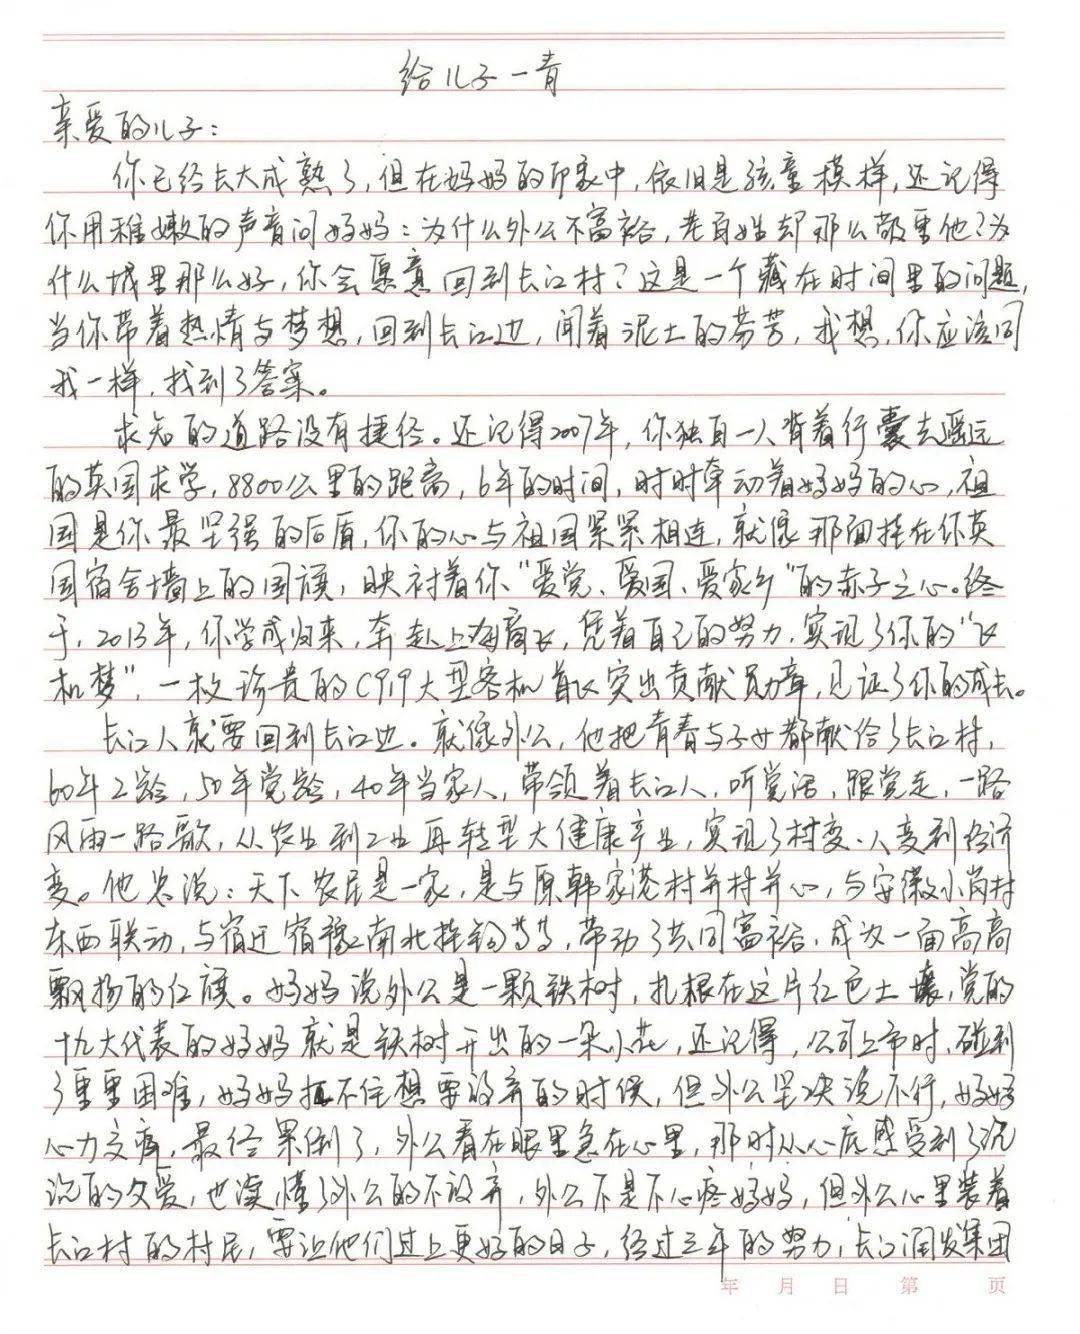 给儿子一青
亲爱的儿子：
你已经长大成熟了，但在妈妈的印象中，依旧是孩童模样，还记得
你用稚嫩的声音问妈妈：为什么外公不富裕，老百姓却那么敬重他？为
什么城里那么好，你会愿意回到长江村？这是一个藏在时间里的问题，
当你带着热情与梦想，回到长江边，闻着泥土的芬芳，我想，你应该同
我一样，找到了答案。
求知的道路没有捷径。还记得2007年，你独自一人背着行囊去遥远
的英国求学，8800公里的距离，6年的时间，时时牵动着妈妈的心，祖
国是你最坚强的后盾，你的心与祖国紧紧相连，就像那面挂在你英
国宿舍墙上的国旗，映衬着你“爱党、爱国、爱家乡”的赤子之心。终
于，2013年，你学成归来，奔赴上海商飞，凭着自己的努力，实现了你的“飞
机梦”，一枚珍贵的C919大型客机首飞突出贡献员勋章，见证了你的成长。
长江人就要回到长江边。就像外公，他把青春与子女都献给了长江村，
60年工龄，50年党龄，40年当家人，带领着长江人，听党话，跟党走，一路
风雨一路歌，从农业到工业再转型大健康产业，实现了村变、人变到经济
变。他常说：天下农民是一家，是与原韩家港村并村并心，与安徽小岗村
东西联动，与宿迁宿豫江南北挂钩等等，带动了共同富裕，成为一面高高
飘扬的红旗。妈妈说外公是一颗铁树，扎根在这片红色土壤，党的
十九大代表的妈妈就是铁树开出的一朵小花，还记得，公司上市时，碰到
了重重困难，妈妈扛不住想要放弃的时候，但外公坚决说不行，妈妈
心力交瘁，最终累倒了，外公看在眼里急在心里，那时从心底感受到了沉
沉的父爱，也读懂了外公的不放弃，外公不是不心疼妈妈，但外公心里装着
长江村的村民，要让他们过上更好的日子，经过三年的努力，长江润发集团
年 月 日 第 页